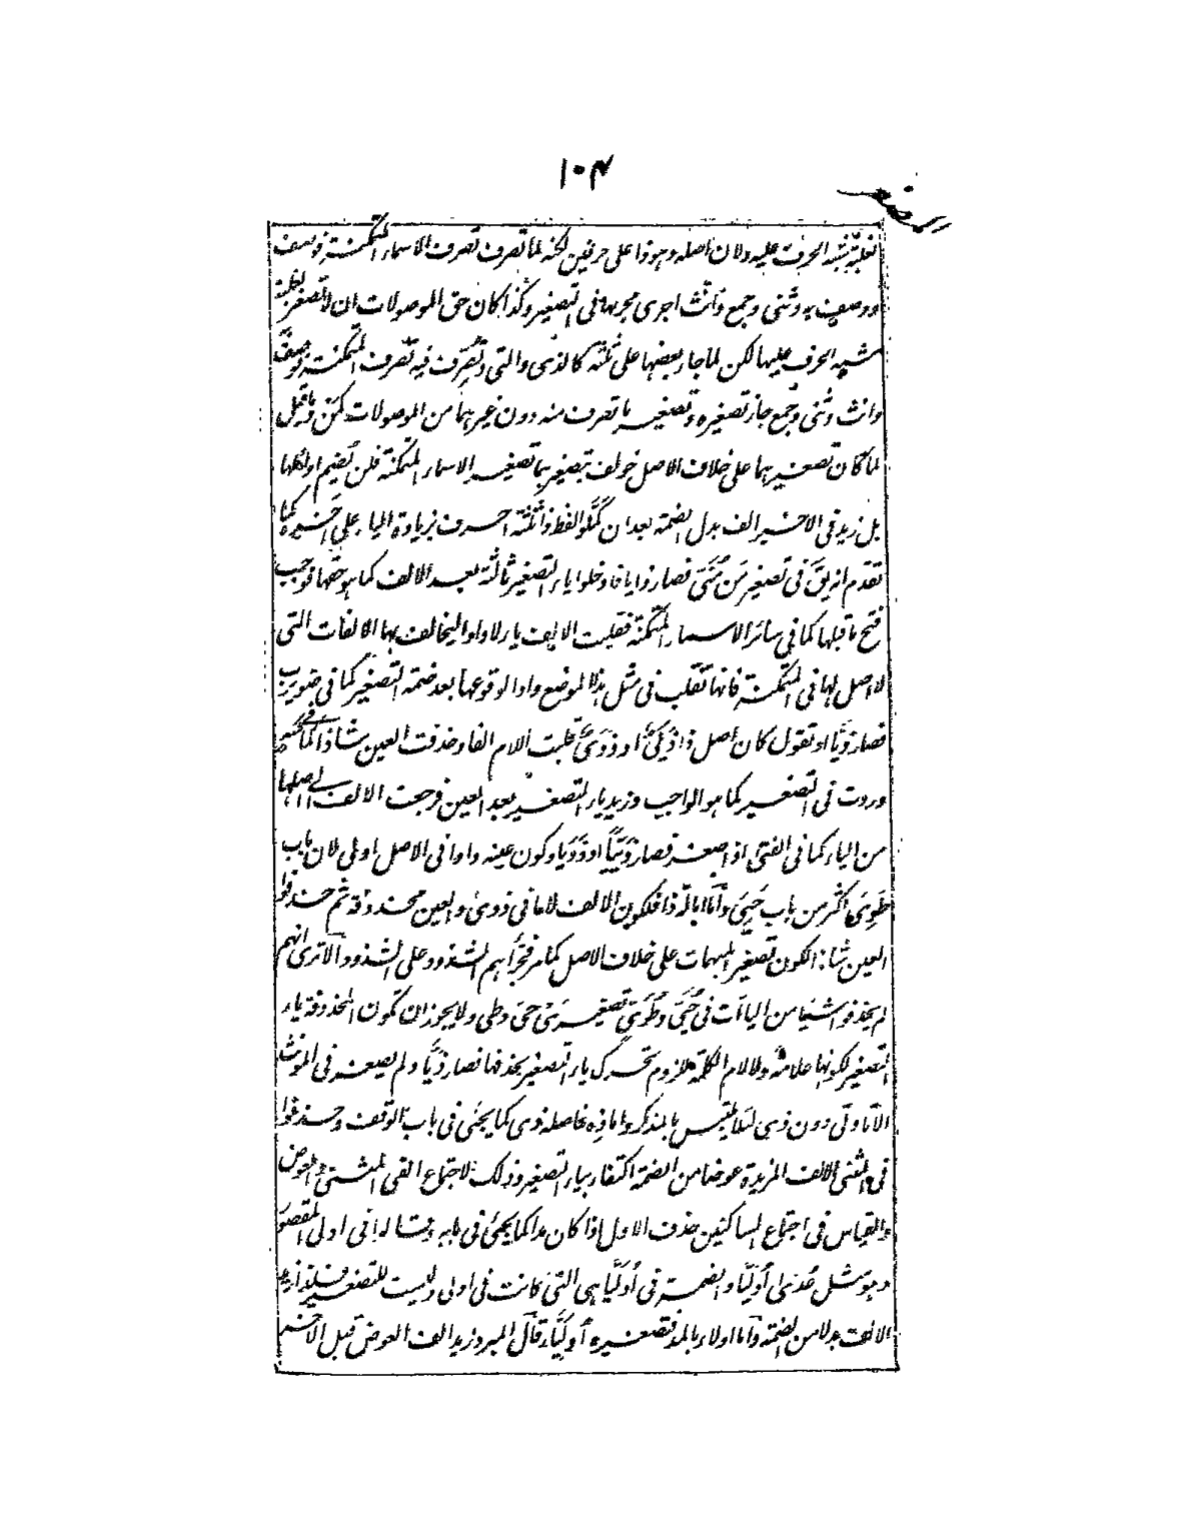 ۱۰۴
التصغير
لغلبة شبه الحرف عليه ولان اصله وهو ذا على حرفين لكنه لما تصرف تصرف الاسماء المتمكنة فوصف
ووصف به وثنى وجمع وانث اجرى مجريها فى التصغير وكذا كان حق الموصولات ان لا تصغر لغلبة
شبه الحرف عليها لكن لما جاء بعضها على ثلثة كالذى والتى وتصرف فيه تصرف المتمكنة فوصف
وانث وثنى وجمع جاز تصغيره وتصغير ما تصرف منه دون غيرهما من الموصولات كمن وما قيل
لما كان تصغيرهما على خلاف الاصل خولف بتصغيرهما تصغير الاسماء المتمكنة فلن تضم اوائلها
بل زيد فى الاخير الف بدل الضمة بعد ان كملوا لفظ ذا ثلثة احرف بزيادة الياء على اخيره كما
تقدم انه يق فى تصغير من منى فصار ذايا فادخلوا ياء التصغير ثالثة بعد الالف كما هو حقها فوجب
فتح ما قبلها كما فى سائر الاسماء المتمكنة فقلبت الالف ياء لا واوا ليخالف بها الالفات التى
لا اصل لها فى المتمكنة فانها تقلب فى مثل هذا الموضع واوا لوقوعها بعد ضمة التصغير كما فى ضويرب
فصار ذيا او تقول كان اصل ذا ذيى او ذوى قلبت اللام الفا وحذفت العين شاذا كما فى سه
وردت فى التصغير كما هو الواجب وزيد ياء التصغير بعد العين فرجعت الالف الى اصلها
من الياء كما فى الفتى اذا صغر فصار ذييا او ذويا وكون عينه واوا فى الاصل اولى لان باب
طوى اكثر من باب حيى واما امالة ذا فلكون الالف لاما فى ذوى والعين محذوفة ثم حذفوا
العين شاذا لكون تصغير المبهمات على خلاف الاصل كما مر فجرأهم الشذوذ على الشذوذ الا ترى انهم
لم يحذفوا شيئا من الياآت فى حيى وطوى تصغيرى حى وطى ولا يجوز ان تكون المحذوفة ياء
التصغير لكونها علامة ولا لام الكلمة للزوم تحرك ياء التصغير بحذفها فصار ذيا ولم يصغر فى المؤنث
الا تا وتى دون ذى لئلا يلتبس بالمذكر واما ذه فاصله ذى كما يجئ فى باب الوقف وحذفوا
فى المثنى الالف المزيدة عوضا من الضمة اكتفاء بياء التصغير وذلك لاجتماع الفى المثنى والعوض
والقياس فى اجتماع الساكنين حذف الاول اذا كان مدا كما يجئ فى بابه وقالوا فى اولى المقصور
وهو مثل هدى اوليا والضمة فى اوليا هى التى كانت فى اولى وليست للتصغير فلذا زيد
الالف بدلا من الضمة واما اولاء بالمد فتصغيره اولياء قال المبرد زيد الف العوض قبل الاخر